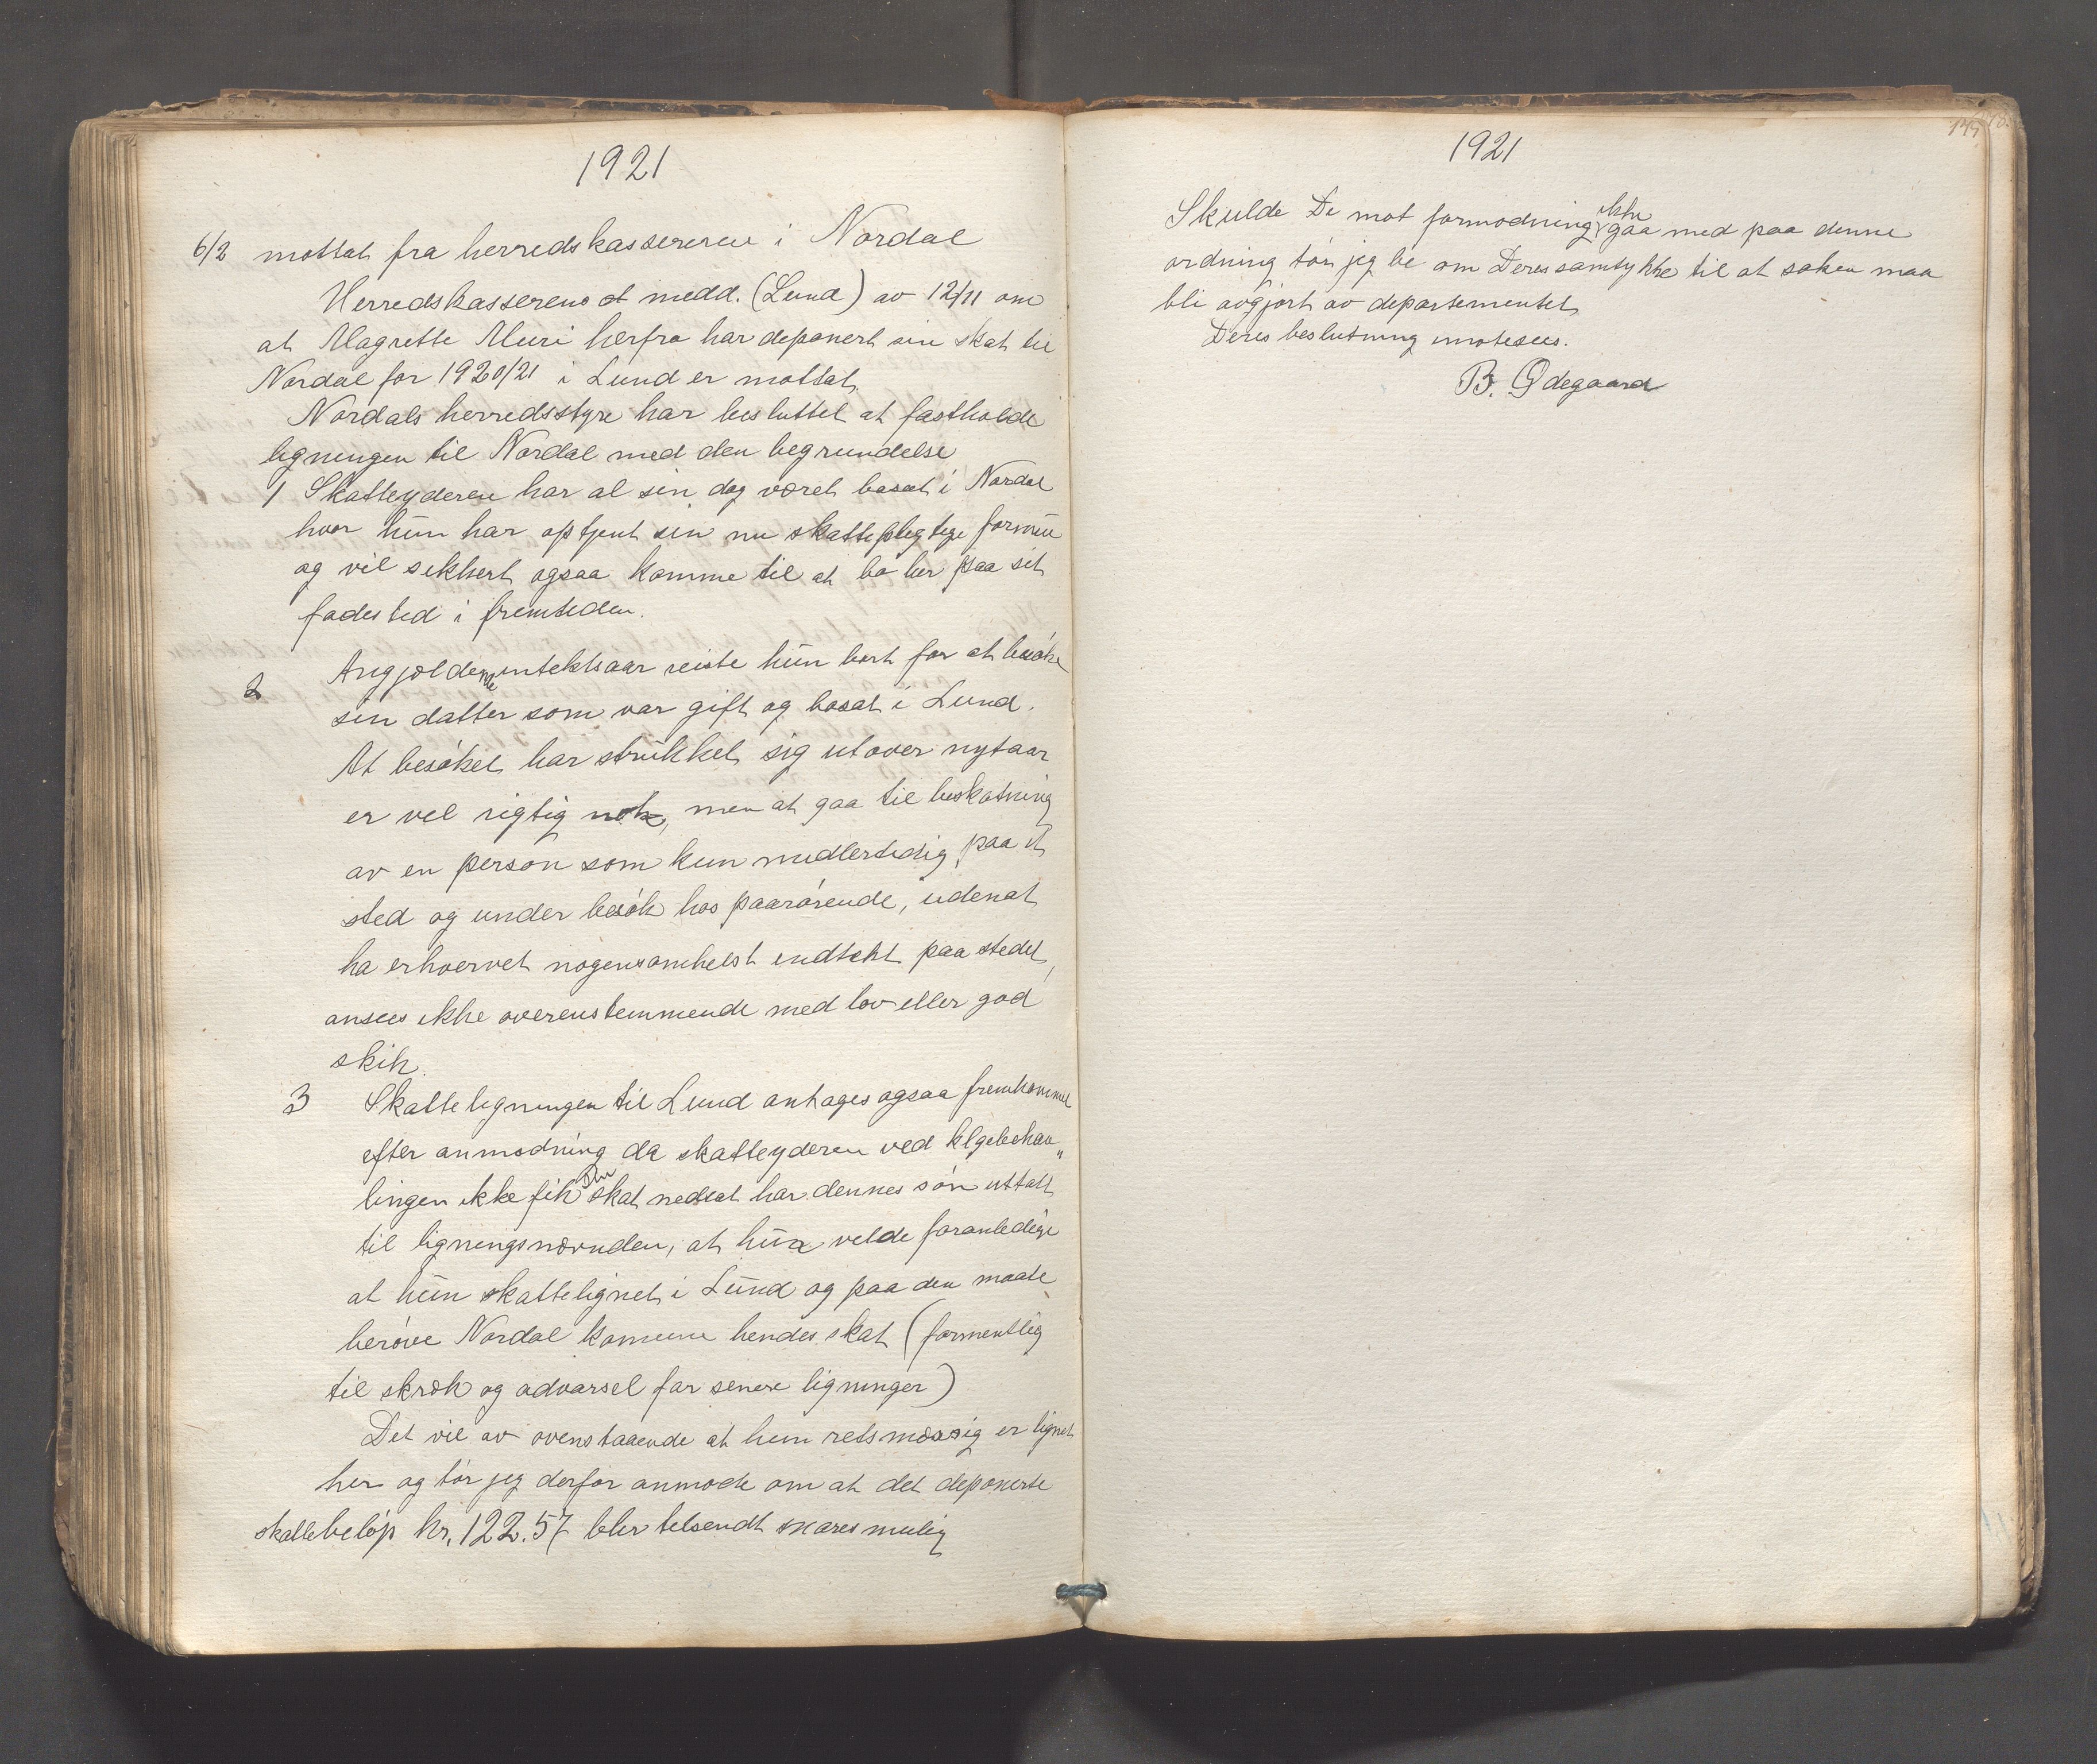 1921
6/2 mottat fra herredskassereren i Nordal
Herredskasserens medd. (Lund) av 12/11 om
at Magrette Muri herfra har deponert sin skat til
Nordal for 1920/21 i Lund er mottat.
Nordals herredsstyre har besluttet at fastholde
ligningen til Nordal med den begrundelse
1 Skatteyderen har al sin dag været bosat i Nordal
hvor hun har optjent sin nu skattepligtige formue
og vil sikkert ogsaa komme til at bo her paa sit
fødested i fremtiden.
2 Angjældende intektsaar reiste hun bort for at besøke
sin datter som var gift og bosat i Lund.
At besøket har strukket sig utover nytaar
er vel rigtig nok, men at gaa til beskatning
av en person som kun midlertidig paa et
sted og under besøk hos paarørende, uden at
ha erhvervet nogensomhelst indtekt paa stedet,
ansees ikke overenstemmende med lov eller god
skik.
3 Skatteligningen til Lund antages ogsaa fremkommet
efter anmodning da skatteyderen ved klagebehan„
lingen ikke fik sin skat nedsat har dennes søn uttalt
til ligningsnævnden, at hun vilde foranledige
at hun skattelignet i Lund og paa den maate
berøve Nordal komune hendes skat (formentlig
til skræk og advarsel for senere ligninger)
Det vil av ovenstaaende at hun retsmæssig er lignet
her og tør jeg derfor anmode om at det deponerte
skattebeløp kr. 122.57 blir tilsendt snares mulig
1921
149
Skulde De mot formodning ikke gaa med paa denne
ordning tør jeg be om Deres samtykke til at saken maa
bli avgjort av departementet,
Deres beslutning imotesees.
B. Ødegaard